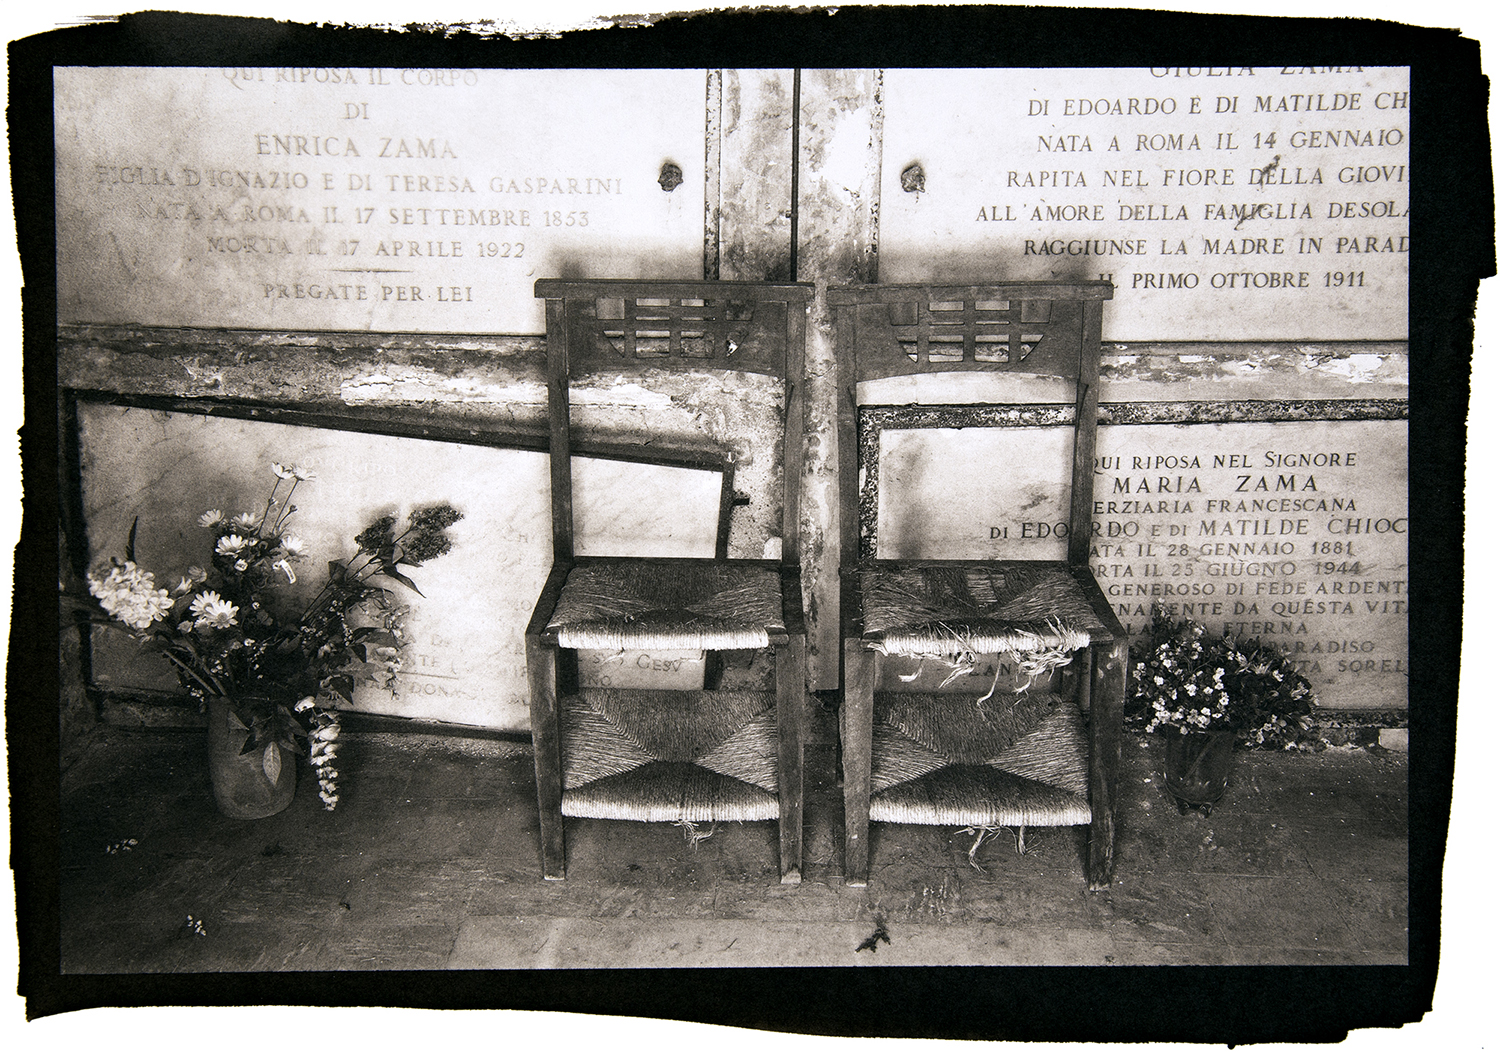 QUI RIPOSA IL CORPO
DI
ENRICA ZAMA
FIGLIA D'IGNAZIO E DI TERESA GASPARINI
NATA A ROMA IL 17 SETTEMBRE 1853
MORTA IL 17 APRILE 1922
PREGATE PER LEI
GIULIA ZAMA
DI EDOARDO E DI MATILDE CH
NATA A ROMA IL 14 GENNAIO
RAPITA NEL FIORE DELLA GIOVI
ALL'AMORE DELLA FAMIGLIA DESOLA
RAGGIUNSE LA MADRE IN PARAD
IL PRIMO OTTOBRE 1911
GESÙ
DONA
QUI RIPOSA NEL SIGNORE
MARIA ZAMA
ERZIARIA FRANCESCANA
DI EDOARDO E DI MATILDE CHIOC
ATA IL 28 GENNAIO 1881
ORTA IL 25 GIUGNO 1944
GENEROSO DI FEDE ARDENT
NAMENTE DA QUESTA VITA
ETERNA
PARADISO
SOREL